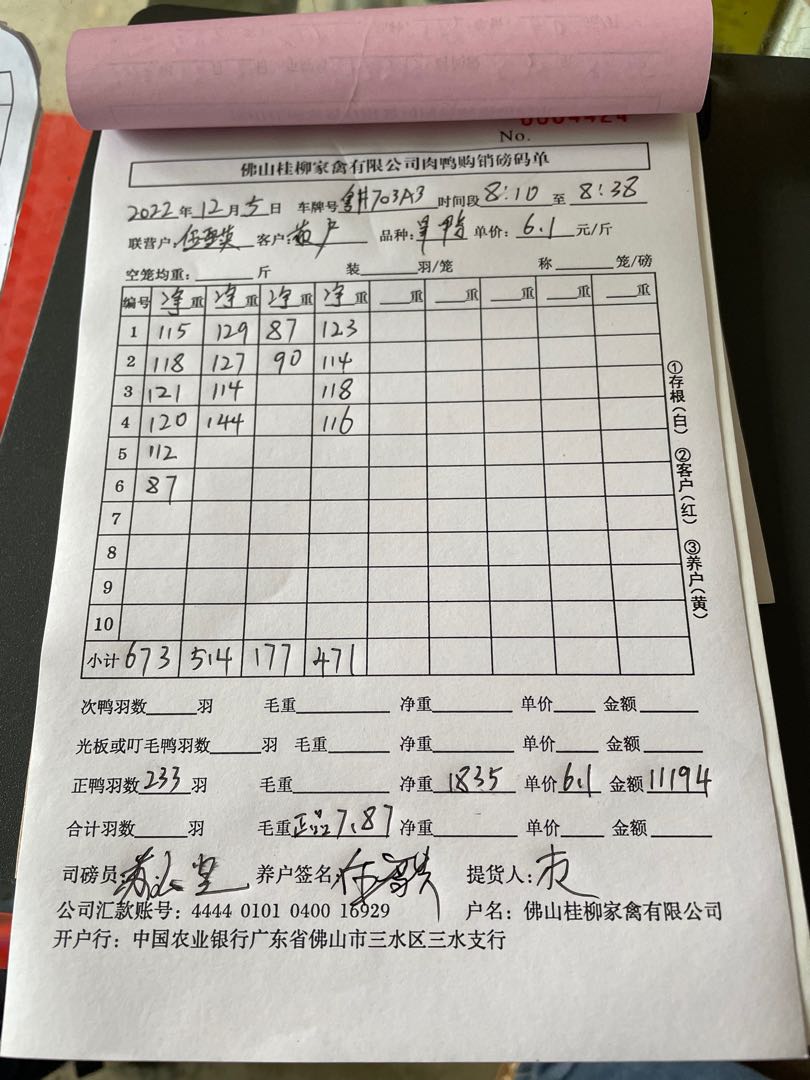 No. 0004424
佛山桂柳家禽有限公司肉鸭购销磅码单
2022年12月5日 车牌号 703A3 时间段 8:10 至 8:38
联营户: 客户: 品种: 单价: 6.1 元/斤
空笼均重: 斤 装 羽/笼 称 笼/磅
编号 净重 净重 净重 净重 重 重 重 重 重
1 115 129 87 123
2 118 127 90 114
3 121 114 118
4 120 144 116
5 112
6 87
7
8
9
10
小计 673 514 177 471
①存根(白) ②客户(红) ③养户(黄)
次鸭羽数 羽 毛重 净重 单价 金额
光板或叮毛鸭羽数 羽 毛重 净重 单价 金额
正鸭羽数 233 羽 毛重 净重 1835 单价 6.1 金额 11194
合计羽数 羽 毛重 正品 7.87 净重 单价 金额
司磅员: 养户签名: 提货人:
公司汇款账号: 4444 0101 0400 16929 户名: 佛山桂柳家禽有限公司
开户行: 中国农业银行广东省佛山市三水区三水支行